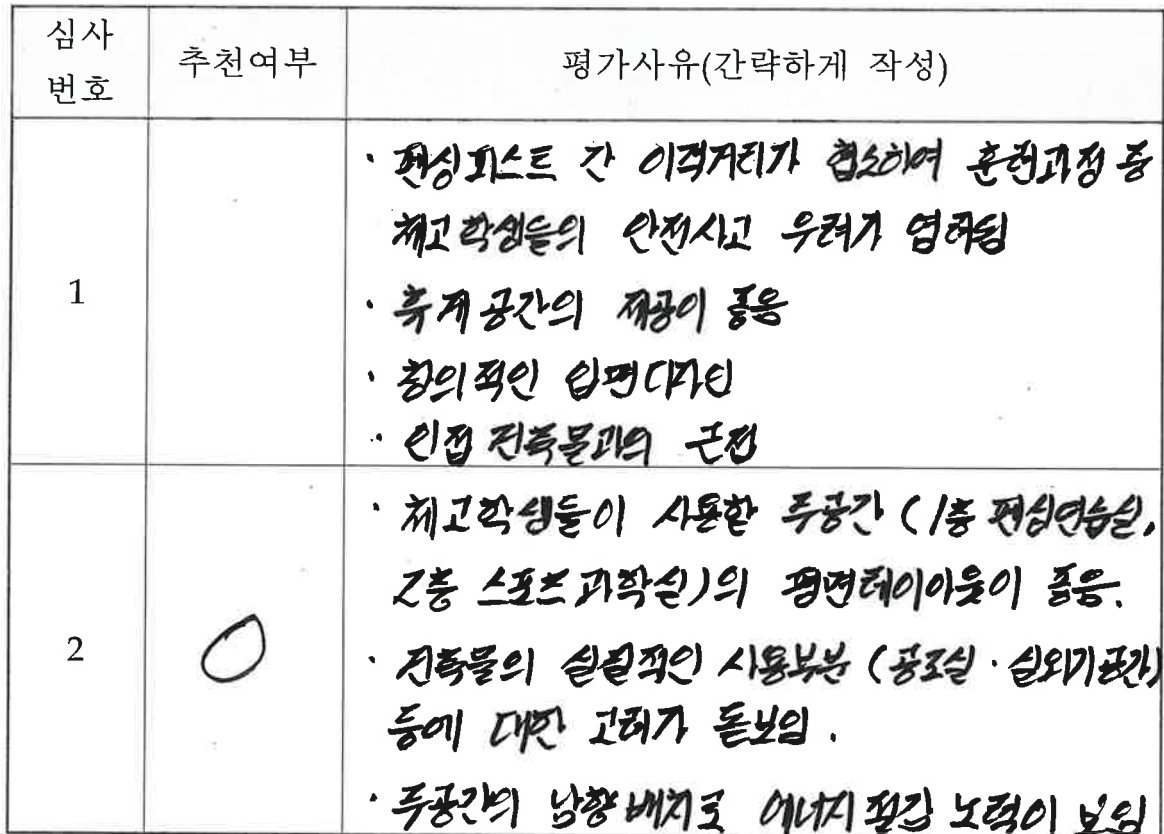 심사
번호
추천여부
평가사유(간략하게 작성)
1
· 펜싱피스트 간 이격거리가 협소하여 훈련과정 중
체고학생들의 안전사고 우려가 염려됨
· 휴게공간의 제공이 좋음
· 창의적인 입면디자인
· 인접 건축물과의 근접
2
○
· 체고학생들이 사용할 주공간 (1층 펜싱연습실,
2층 스포츠과학실)의 평면레이아웃이 좋음.
· 건축물의 실질적인 사용부분 (공조실 · 실외기공간)
등에 대한 고려가 돋보임.
· 주공간의 남향 배치로 에너지 절감 노력이 보임